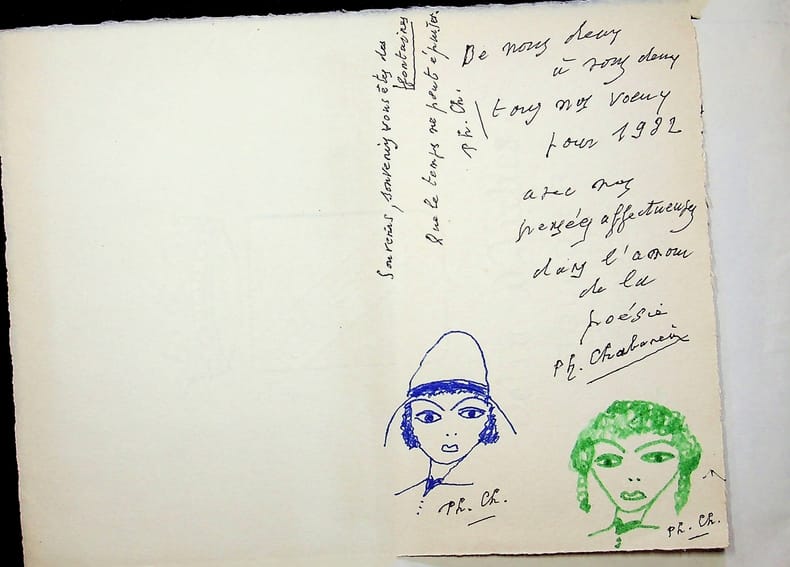 De nous deux
à vous deux
tous nos voeux
pour 1982
avec nos
pensées affectueuses
dans l'amour
de la
poésie
Ph. Chabaneix
Souvenirs, souvenirs vous êtes des
fontaines
Que le temps ne peut épuiser.
Ph. Ch.
Ph. Ch.
Ph. Ch.